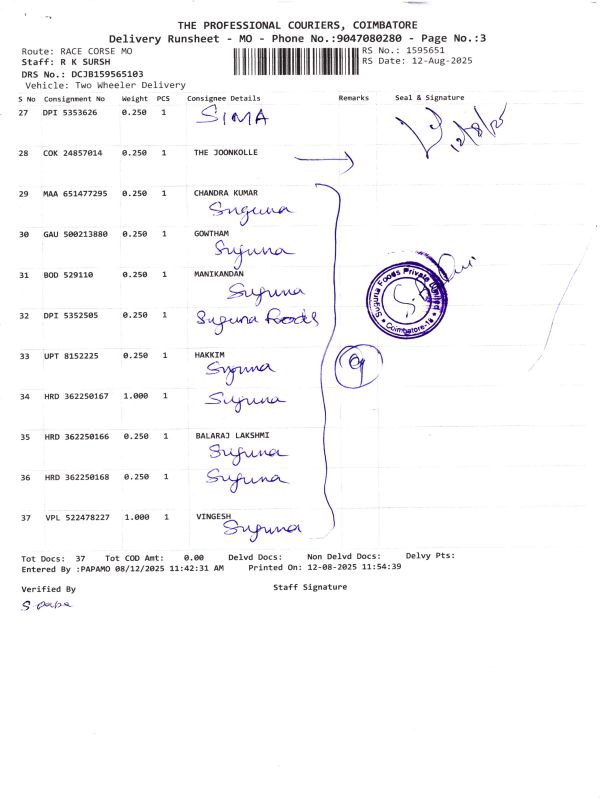 THE PROFESSIONAL COURIERS, COIMBATORE
Delivery Runsheet - MO - Phone No.:9047080280 - Page No.:3
Route: RACE CORSE MO RS No.: 1595651
Staff: R K SURSH RS Date: 12-Aug-2025
DRS No.: DCJB159565103
Vehicle: Two Wheeler Delivery
S No Consignment No Weight PCS Consignee Details Remarks Seal & Signature
27 DPI 5353626 0.250 1 SIMA
12/8/25
28 COK 24857014 0.250 1 THE JOONKOLLE
29 MAA 651477295 0.250 1 CHANDRA KUMAR
Suguna
30 GAU 500213880 0.250 1 GOWTHAM
Suguna
31 BOD 529110 0.250 1 MANIKANDAN
Suguna
Suguna Foods Private Limited
Coimbatore-18
32 DPI 5352505 0.250 1 Suguna Foods
33 UPT 8152225 0.250 1 HAKKIM
Suguna
9
34 HRD 362250167 1.000 1 Suguna
35 HRD 362250166 0.250 1 BALARAJ LAKSHMI
Suguna
36 HRD 362250168 0.250 1 Suguna
37 VPL 522478227 1.000 1 VINGESH
Suguna
Tot Docs: 37 Tot COD Amt: 0.00 Delvd Docs: Non Delvd Docs: Delvy Pts:
Entered By :PAPAMO 08/12/2025 11:42:31 AM Printed On: 12-08-2025 11:54:39
Verified By Staff Signature
S papa